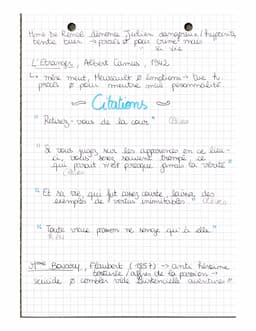 Mme De Rênal dénonce Julien dangereux / hypocrite
tente tuer → procès et pour crime mais
sa vie
L'Étranger, Albert Camus, 1942
↳ mère meurt, Meursault ∅ émotions → tue
procès ∅ pour meurtre mais personnalité
Citations
" Retirez-vous de la cour "
" Si vous jugez sur les apparences en ce lieu-
ci, vous serez souvent trompé ce
qui paraît n'est presque jamais la vérité "
" Et sa vie, qui fut assez courte, laissa des
exemples de vertus inimitables "
" Toute vraie passion ne songe qu'à elle "
Mme Bovary, Flaubert (1857) → anti héroïne
affres de la passion →
suicide ∅ combler vide existentielle aventures